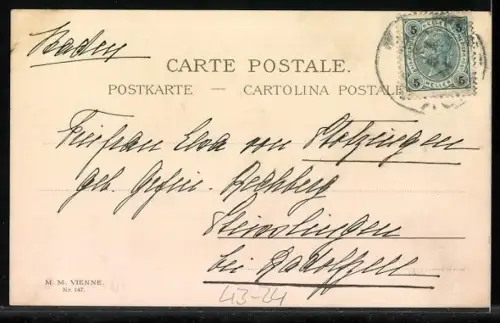 Baden
CARTE POSTALE.
POSTKARTE — CARTOLINA POSTALE
5 5
5 HELLER 5
Freifrau Elsa von Stotzingen
geb. Gräfin Rechberg
Steisslingen
bei Radolfzell
M. M. VIENNE.
Nr. 147.
43-24